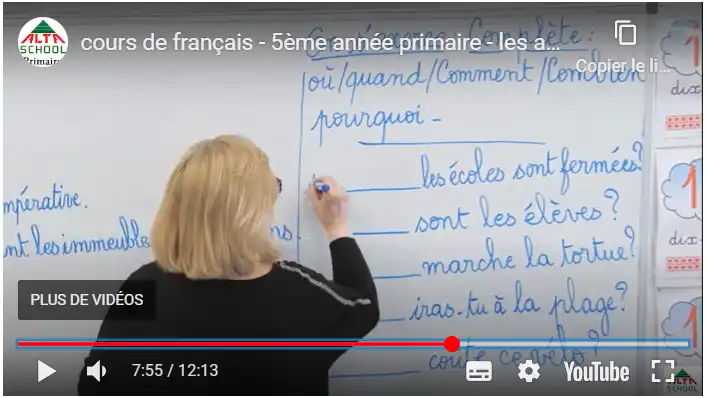 ALTA
SCHOOL
Primaire
cours de français - 5ème année primaire - les a...
Complète :
Copier le li...
où/quand/Comment/Combien
pourquoi -
les écoles sont fermées?
sont les élèves ?
marche la tortue?
iras-tu à la plage?
coûte ce vélo ?
mpérative.
nt les immeuble
ns.
dix
1
dix
1
PLUS DE VIDÉOS
7:55 / 12:13
YouTube
ALTA